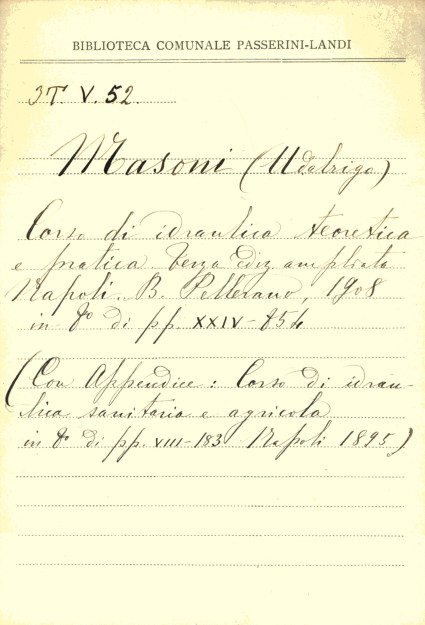 BIBLIOTECA COMUNALE PASSERINI-LANDI
3T. V. 52.
Masoni (Udalrigo)
Corso di idraulica teoretica
e pratica. Terza ediz ampliata
Napoli. B. Pellerano, 1908
in 8º di pp. XXIV-854
(Con Appendice: Corso di idrau-
lica sanitaria e agricola
in 8º di pp. VIII-183 Napoli 1895)